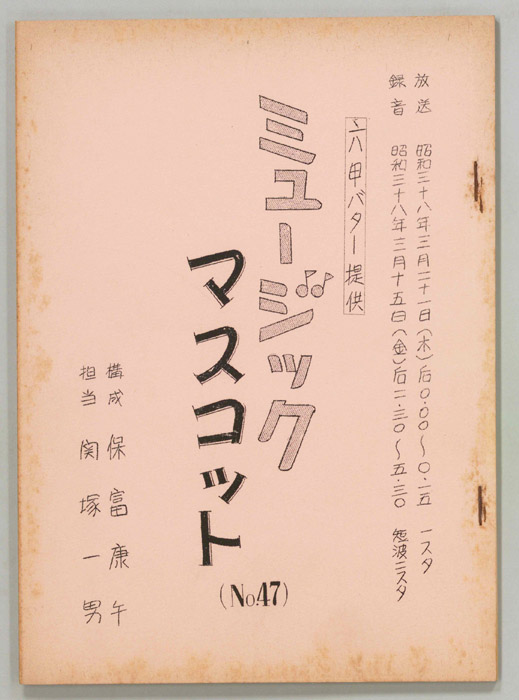 放送 昭和三十八年三月二十一日(木)后0.00〜0.15 一スタ
録音 昭和三十八年三月十五日(金)后二.三〇〜五.三〇 短波二スタ
六甲バター提供
ミュージック
マスコット
(No.47)
構成 保富康午
担当 関塚一男